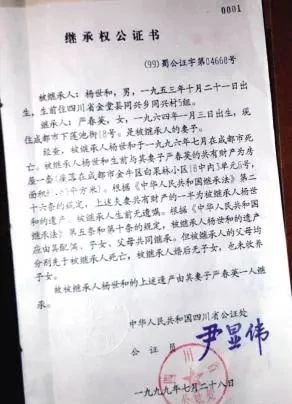 0001
继承权公证书
(99)蜀公证字第04668号
被继承人:杨世和,男,一九五三年十月二十一日出
生,生前住四川省金堂县同兴乡同兴村5组。
继承人:严春英,女,一九六四年一月三日出生,现
住成都市下莲池街18号。是被继承人的妻子。
经查,被继承人杨世和于一九九六年七月在成都市死
亡。被继承人杨世和生前与其妻子严春英的共有财产为房
屋一套(座落在成都市金牛区白果林小区18中内3单元6号,
面积 平方米)。根据《中华人民共和国继承法》第二
十六条的规定,上述夫妻共有财产的一半为被继承人杨世
和的遗产。被继承人生前无遗嘱。根据《中华人民共和国
继承法》第五条和第十条的规定,被继承人杨世和的遗产
应由其配偶、子女、父母共同继承。但被继承人的父母均
分别先于被继承人死亡,被继承人婚后无子女,也未收养
子女。
故被继承人杨世和的上述遗产由其妻子严春英一人继
承。
中华人民共和国四川省公证处
公证员 尹显伟
一九九九年七月二十八日